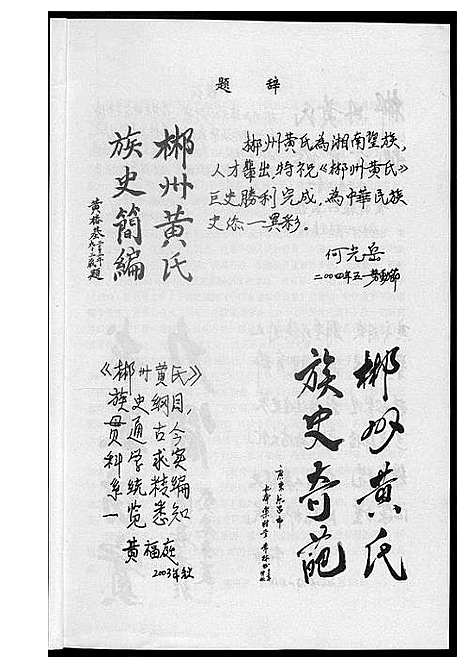 題 辞
郴州黄氏為湘南望族，
人才輩出，特祝《郴州黄氏》
巨史勝利完成，為中華民族
史添一異彩。
何光岳
二〇〇四年五一劳動節
郴州黄氏
族史簡編
郴州黄氏
族史奇葩
《郴州黄氏》
族史綱目，
贯通古今
科学求实
系統精編
一览悉知
黄福庭
2003年秋